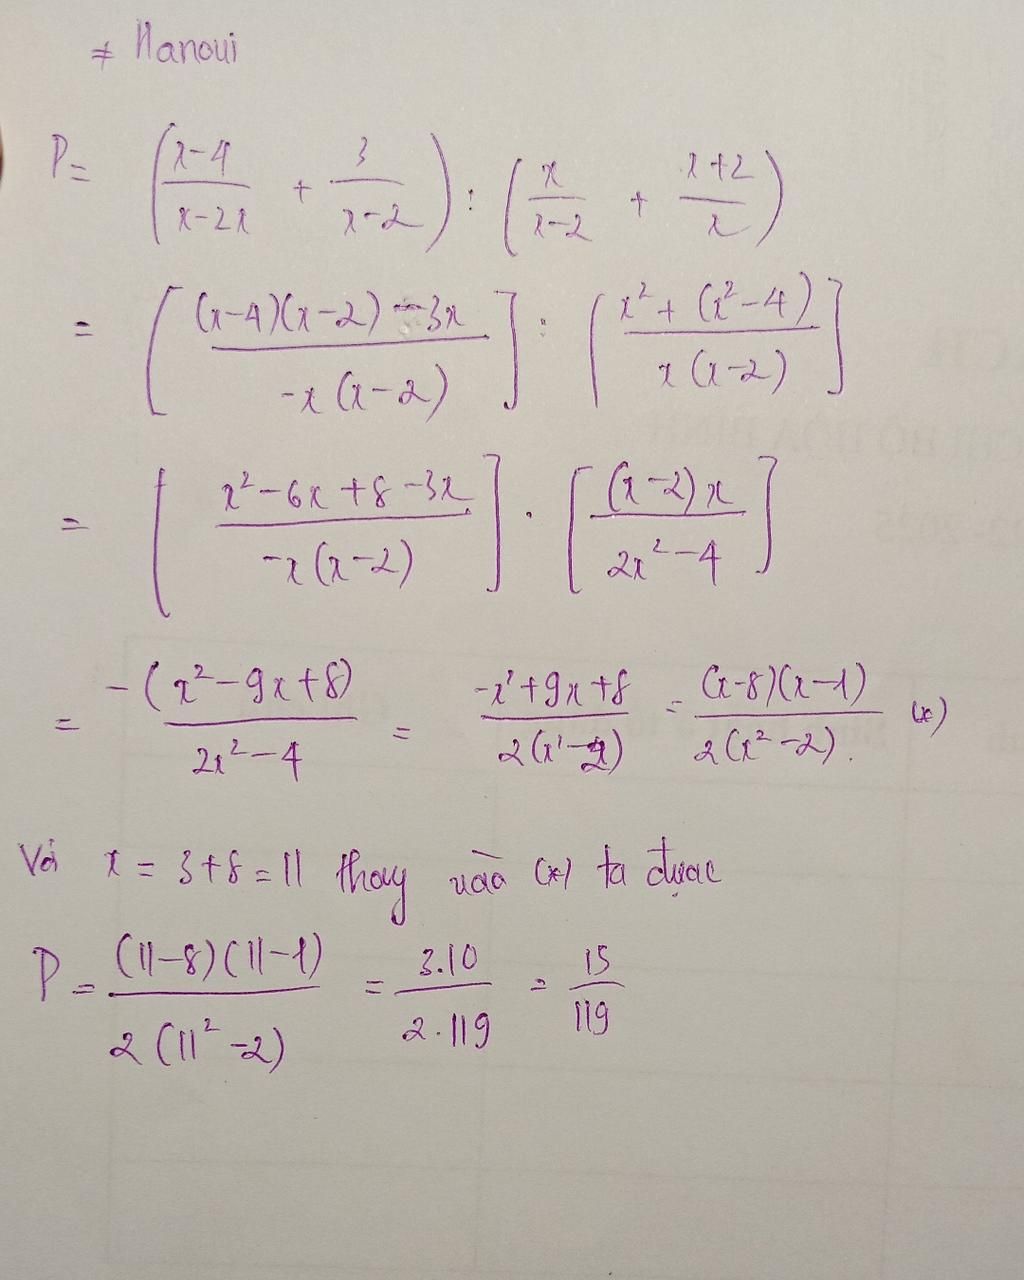 ≠ Hanoui
P = ((x-4)/(x-2x) + 3/(x-2)) : (x/(x-2) + (x+2)/x)
= [((x-4)(x-2) - 3x)/(-x(x-2))] : [(x² + (x²-4))/(x(x-2))]
= [(x²-6x+8-3x)/(-x(x-2))] . [((x-2)x)/(2x²-4)]
= (-(x²-9x+8))/(2x²-4) = (-x²+9x+8)/(2(x²-2)) = ((x-8)(x-1))/(2(x²-2)). (*)
Với x = 3+8 = 11 thay vào (*) ta được
P = ((11-8)(11-1))/(2(11²-2)) = (3.10)/(2.119) = 15/119